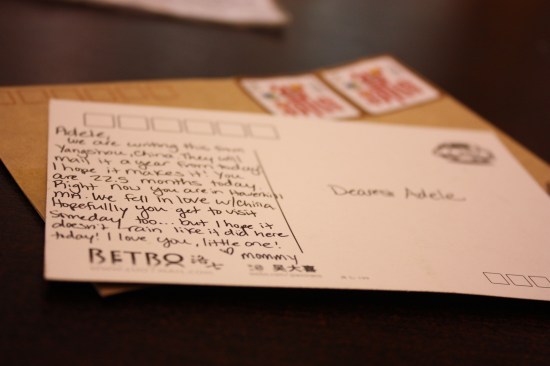 Adele,
We are writing this from
Yangshou, China. They will
mail it a year from today!
I hope it makes it! You
are 22.5 months today.
Right now you are in Hovenwin
MN. We fell in love w/China.
Hopefully you get to visit
someday too... but I hope it
doesn't rain like it did here
today! I love you, little one!
♡ mommy
BETBO
Dearest Adele